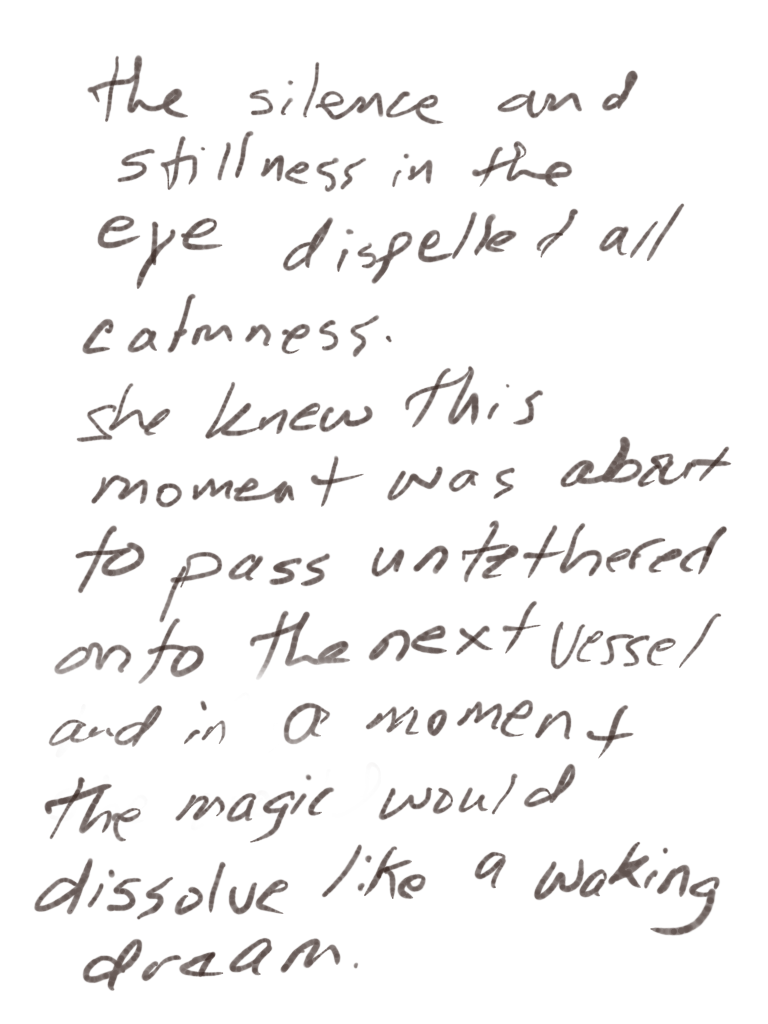 the silence and
stillness in the
eye dispelled all
calmness.
she knew this
moment was about
to pass untethered
onto the next vessel
and in a moment
the magic would
dissolve like a waking
dream.